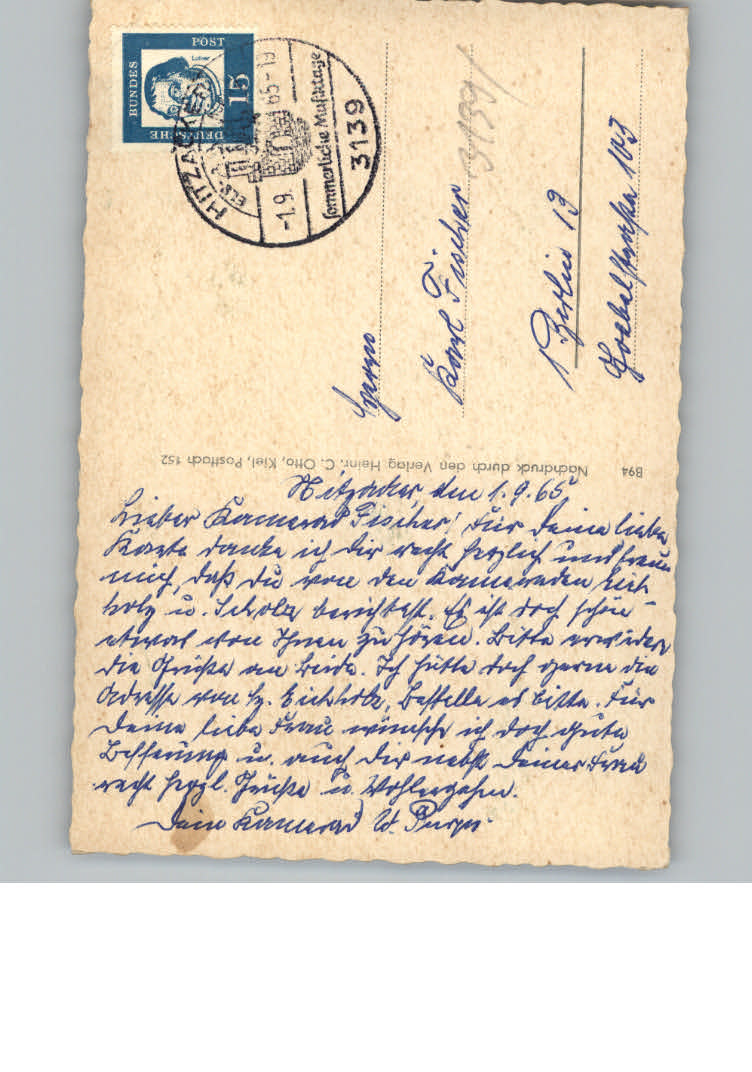 DEUTSCHE
BUNDES
POST
Luther
15
HITZACKER
-1.9.65-19
Sommerliche Musiktage
3139
3139/
Herrn
Karl Fischer
1 Berlin 13
Goebelstraße 103
B94
Nachdruck durch den Verlag Heinr. C. Otto, Kiel, Postfach 152
Hitzacker, den 1.9.65
Lieber Kamerad Fischer! Für Deine liebe
Karte danke ich Dir recht herzlich und freue
mich, daß Du von den Kameraden Eich-
holz u. Scholz berichtest. Es ist doch schön
etwas von Ihnen zu hören. Bitte erwidere
die Grüße an beide. Ich hätte doch gerne die
Adresse von Eichholz, bestelle es bitte. Für
Deine liebe Frau wünsche ich doch gute
Besserung u. auch Dir nebst Deiner Frau
recht herzl. Grüße u. Wohlergehen.
Dein Kamerad W.